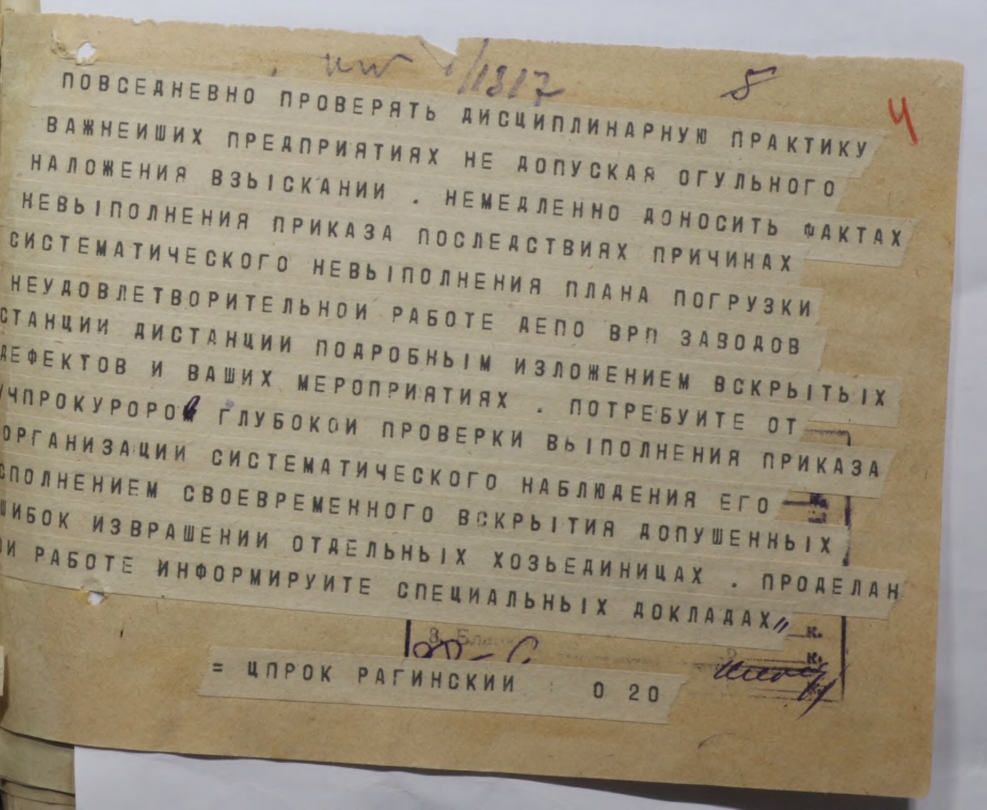 1/1317 8 4
ПОВСЕДНЕВНО ПРОВЕРЯТЬ ДИСЦИПЛИНАРНУЮ ПРАКТИКУ
ВАЖНЕИШИХ ПРЕДПРИЯТИЯХ НЕ ДОПУСКАЯ ОГУЛЬНОГО
НАЛОЖЕНИЯ ВЗЫСКАНИИ . НЕМЕДЛЕННО ДОНОСИТЬ ФАКТАХ
НЕВЫПОЛНЕНИЯ ПРИКАЗА ПОСЛЕДСТВИЯХ ПРИЧИНАХ
СИСТЕМАТИЧЕСКОГО НЕВЫПОЛНЕНИЯ ПЛАНА ПОГРУЗКИ
НЕУДОВЛЕТВОРИТЕЛЬНОИ РАБОТЕ ДЕПО ВРП ЗАВОДОВ
СТАНЦИИ ДИСТАНЦИИ ПОДРОБНЫМ ИЗЛОЖЕНИЕМ ВСКРЫТЫХ
ДЕФЕКТОВ И ВАШИХ МЕРОПРИЯТИЯХ . ПОТРЕБУИТЕ ОТ
УЧПРОКУРОРОВ ГЛУБОКОИ ПРОВЕРКИ ВЫПОЛНЕНИЯ ПРИКАЗА
ОРГАНИЗАЦИИ СИСТЕМАТИЧЕСКОГО НАБЛЮДЕНИЯ ЕГО
СПОЛНЕНИЕМ СВОЕВРЕМЕННОГО ВСКРЫТИЯ ДОПУШЕННЫХ
ШИБОК ИЗВРАШЕНИИ ОТДЕЛЬНЫХ ХОЗЬЕДИНИЦАХ . ПРОДЕЛАН
ОИ РАБОТЕ ИНФОРМИРУИТЕ СПЕЦИАЛЬНЫХ ДОКЛАДАХ"
к.
8. к.
= ЦПРОК РАГИНСКИИ О 20